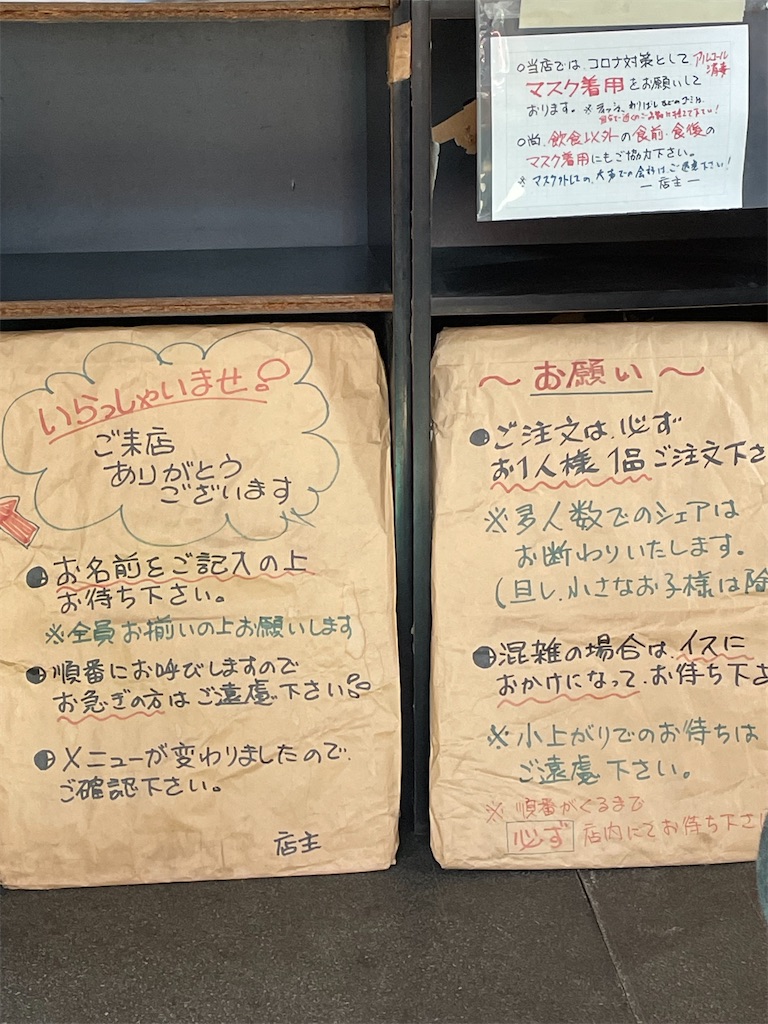 いらっしゃいませ
ご来店
ありがとう
ございます
お名前をご記入の上
お待ち下さい。
※全員お揃いの上お願いします
順番にお呼びしますので
お急ぎの方はご遠慮下さい
メニューが変わりましたので、
ご確認下さい。
店主
○当店では、コロナ対策として アルコール消毒
マスク着用をお願いして
おります。
○尚、飲食以外の食前・食後の
マスク着用にもご協力下さい。
※マスク外しての、大声での会話は、ご遠慮下さい!
ー店主ー
〜お願い〜
●ご注文は、必ず
お1人様1品ご注文下さ
※多人数でのシェアは
お断わりいたします。
(旦し、小さなお子様は除
●混雑の場合は、イスに
おかけになって、お待ち下さ
※小上がりでのお待ちは
ご遠慮下さい。
※順番がくるまで
必ず 店内にてお待ち下さい